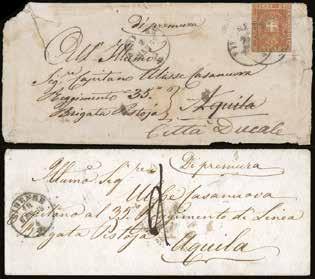 Di premura
All' Illustrmo
Sigr Capitano Ulisse Casanuova
Reggimento 35°
Brigata Pistoja
Aquila
Città Ducale
Di premura
Illustmo Sigr
Ulisse Casanuova
Capitano al 35° Reggimento di Linea
Brigata Pistoja
Aquila